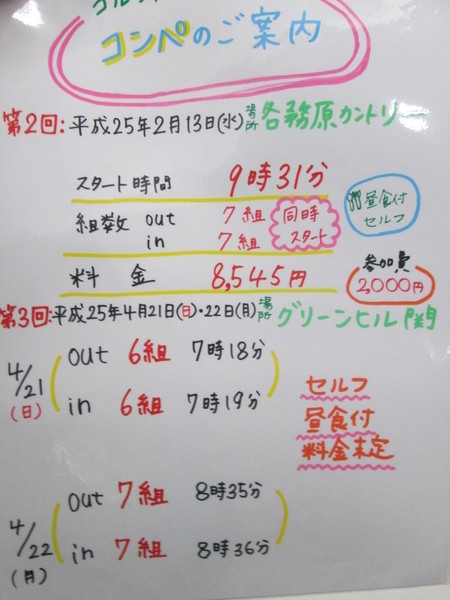 コンペのご案内
第2回:平成25年2月13日(水)場所各務原カントリー
スタート時間 9時31分
組数 out 7組 同時
in 7組 スタート
昼食付
セルフ
料金 8,545円
参加費
2,000円
第3回:平成25年4月21日(日)・22日(月)場所グリーンヒル関
4/21
(日)
out 6組 7時18分
in 6組 7時19分
セルフ
昼食付
料金未定
4/22
(月)
out 7組 8時35分
in 7組 8時36分